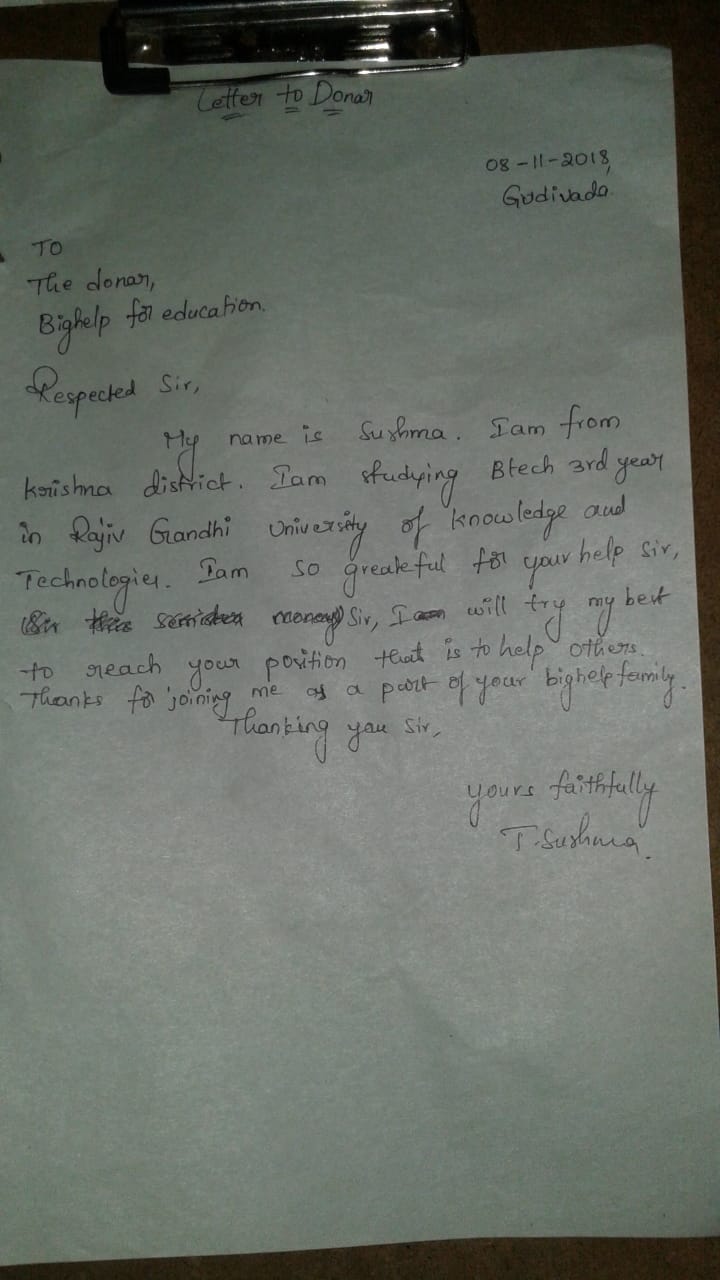 Letter to Donar
08-11-2018,
Gudivada.
TO
The donar,
Bighelp for education.
Respected Sir,
My name is Sushma. Iam from
krishna district. Iam studying Btech 3rd year
in Rajiv Gandhi University of knowledge and
Technologies. Iam so greateful for your help Sir,
Sir, I will try my best
to reach your position that is to help others.
Thanks for joining me as a part of your bighelp family.
Thanking you Sir,
yours faithfully
T.Sushma.